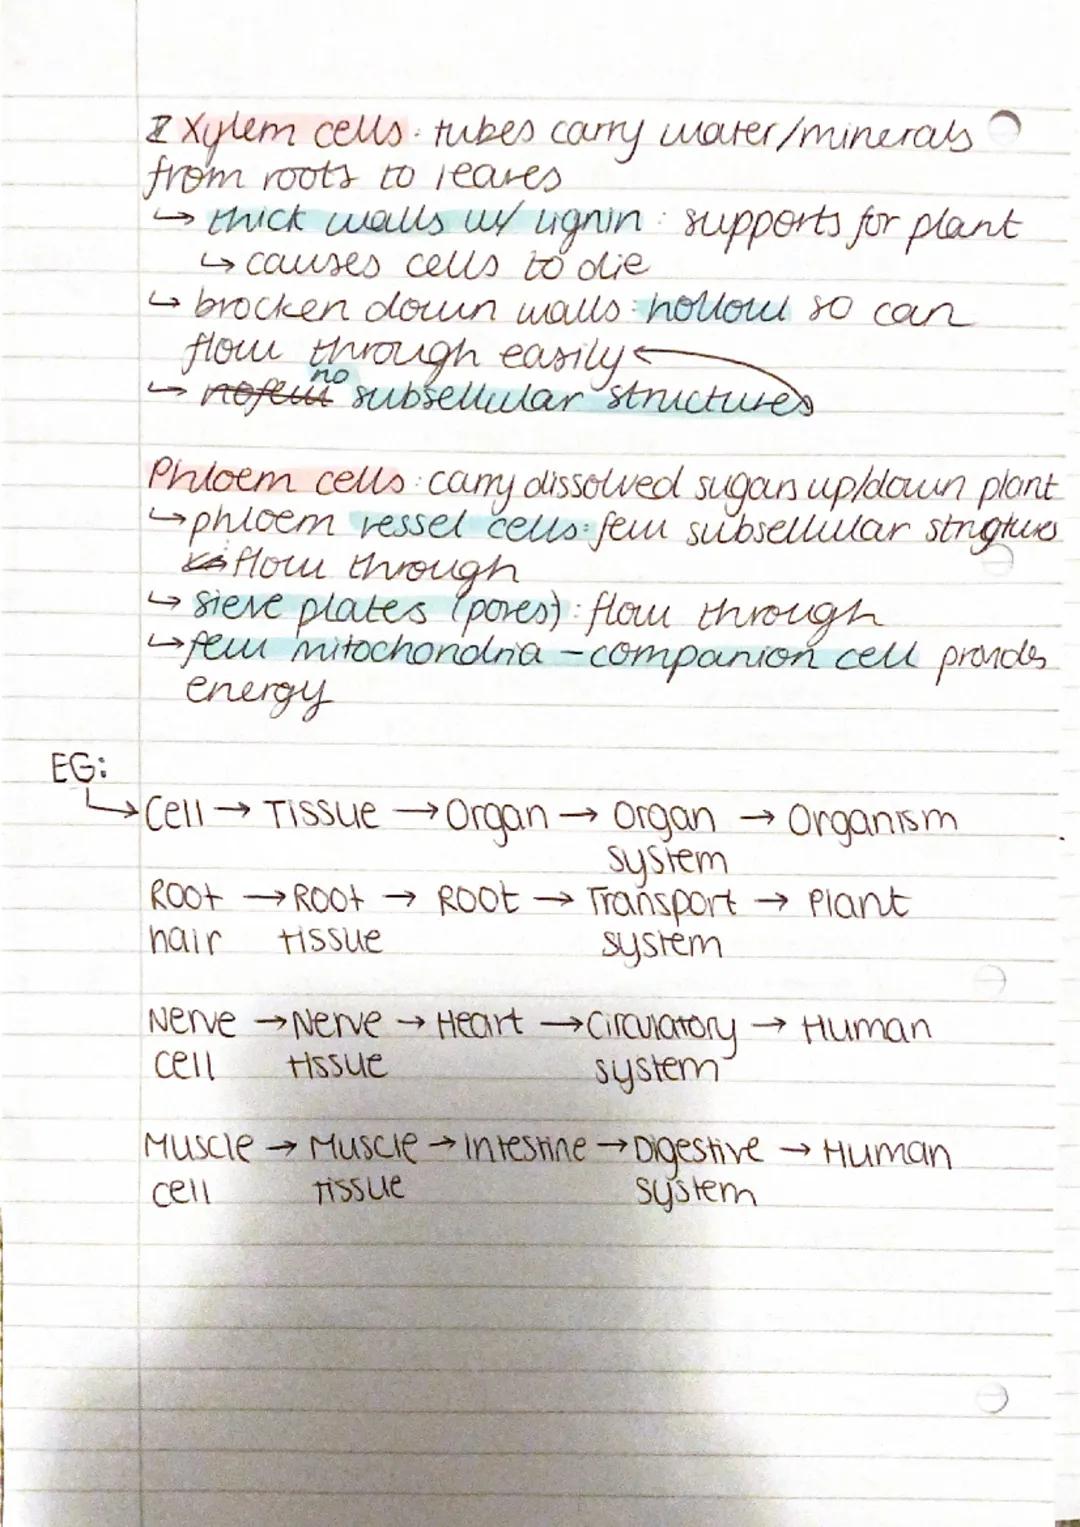 Xylem cells: tubes carry water/minerals
from roots to leaves
↳ thick walls w/ lignin: supports for plant
↳ causes cells to die
↳ brocken down walls: hollow so can
flow through easily
↳ no subsellular structures
Phloem cells: carry dissolved sugars up/down plant
↳ phloem vessel cells: few subsellular structures
flow through
↳ sieve plates (pores): flow through
↳ few mitochondria - companion cell provides
energy
EG:
Cell → Tissue → Organ → Organ → Organism
system
Root → Root → Root → Transport → Plant
hair tissue system
Nerve → Nerve → Heart → Circulatory → Human
cell tissue system
Muscle → Muscle → Intestine → Digestive → Human
cell tissue system